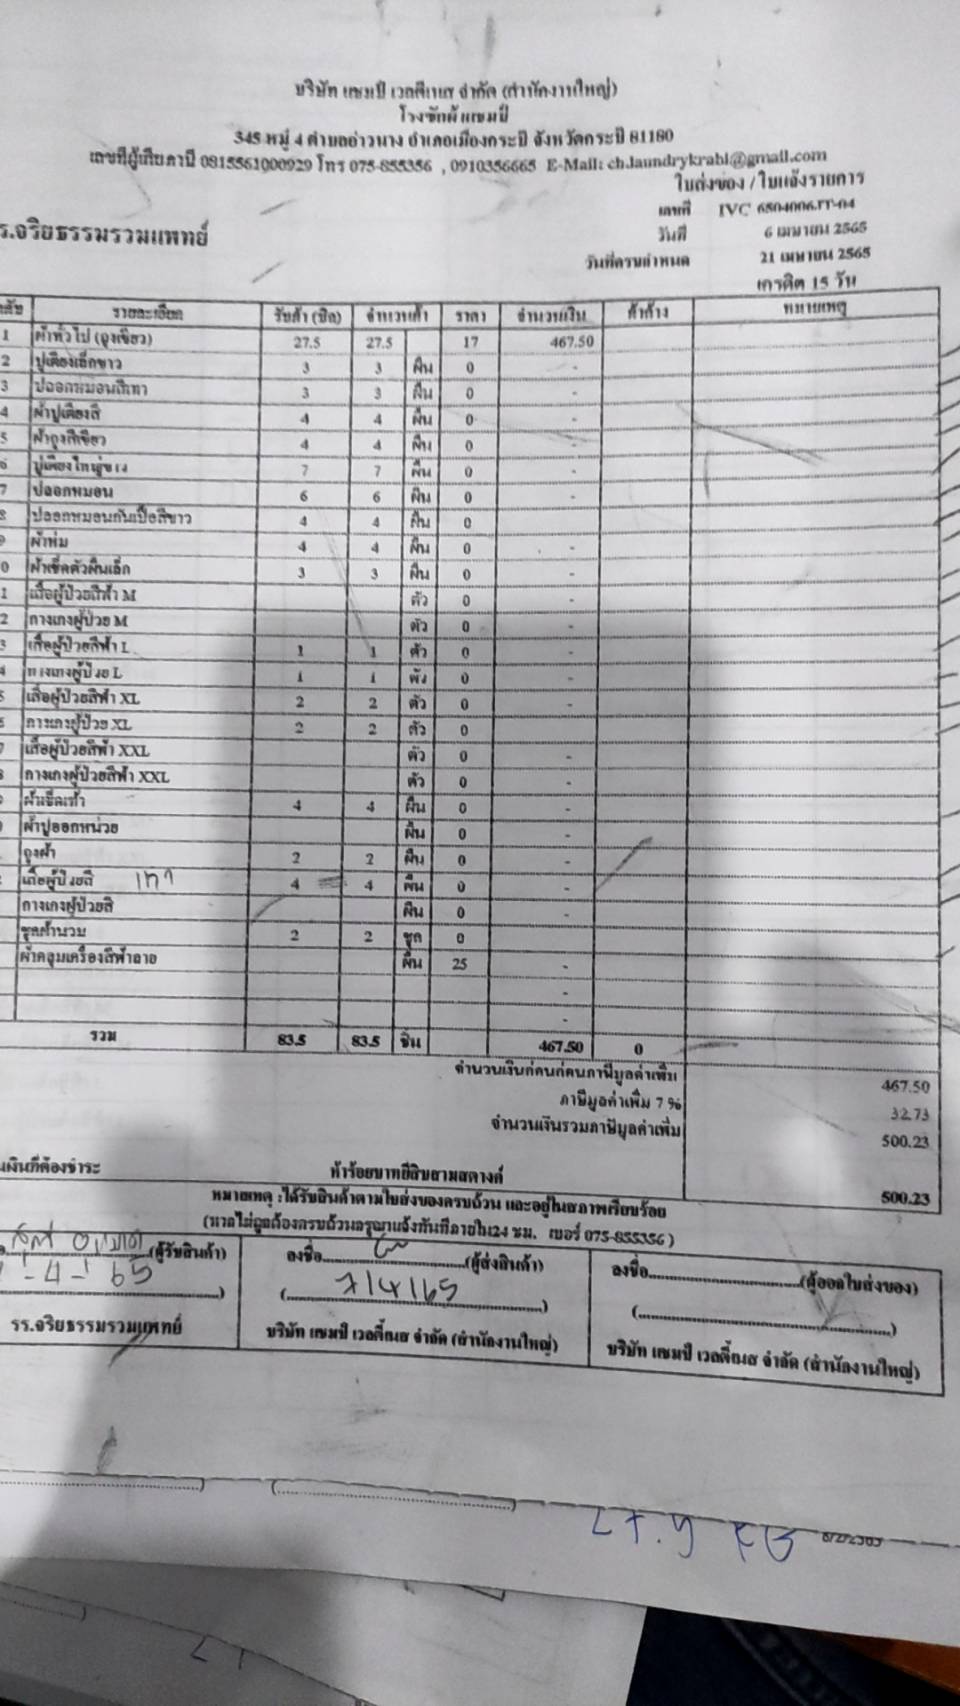 บริษัท แชมป์ เวลตี้เนส จำกัด (สำนักงานใหญ่)
โรงซักผ้าแชมป์
345 หมู่ 4 ตำบลอ่าวนาง อำเภอเมืองกระบี่ จังหวัดกระบี่ 81180
เลขที่ผู้เสียภาษี 0815561000929 โทร 075-855356 , 0910356665 E-Mail: ch.laundrykrabi@gmail.com
ใบส่งของ / ใบแจ้งรายการ
เลขที่ IVC
ร.จริยธรรมรวมแพทย์
วันที่ 6 เมษายน 2565
วันที่ครบกำหนด 21 เมษายน 2565
เครดิต 15 วัน
รายละเอียด รับผ้า จำนวนผ้า ราคา จำนวนเงิน ค้าง หมายเหตุ
1 ผ้าทั่วไป (ถุงเขียว) 27.5 27.5 17 467.50
2 ปูเตียงเล็กขาว 3 3 ผืน 0 -
3 ปลอกหมอนสีเทา 3 3 ผืน 0 -
4 ผ้าปูเตียงสี 4 4 ผืน 0 -
5 ผ้าถุงสีเขียว 4 4 ผืน 0 -
6 ปูเตียงใหญ่ขาว 7 7 ผืน 0 -
7 ปลอกหมอน 6 6 ผืน 0 -
8 ปลอกหมอนกันเปื้อสีขาว 4 4 ผืน 0
9 ผ้าห่ม 4 4 ผืน 0 -
0 ผ้าเช็ดตัวผืนเล็ก 3 3 ผืน 0 -
1 เสื้อผู้ป่วยสีฟ้า M ตัว 0 -
2 กางเกงผู้ป่วย M ตัว 0 -
3 เสื้อผู้ป่วยสีฟ้า L 1 1 ตัว 0 -
4 กางเกงผู้ป่วย L 1 1 ตัว 0 -
5 เสื้อผู้ป่วยสีฟ้า XL 2 2 ตัว 0 -
6 กางเกงผู้ป่วย XL 2 2 ตัว 0 -
7 เสื้อผู้ป่วยสีฟ้า XXL ตัว 0 -
8 กางเกงผู้ป่วยสีฟ้า XXL ตัว 0 -
ผ้าเช็ดเท้า 4 4 ผืน 0 -
ผ้าปูออกหน่วย ผืน 0 -
ถุงผ้า 2 2 ผืน 0 -
เสื้อผู้ป่วยสี เทา 4 4 ผืน 0 -
กางเกงผู้ป่วยสี ผืน 0 -
ชุดผ้านวม 2 2 ชุด 0
ผ้าคลุมเครื่องสีฟ้าลาย ผืน 25 -
-
-
รวม 83.5 83.5 ชิ้น 467.50 0
จำนวนเงินก่อนภาษีมูลค่าเพิ่ม 467.50
ภาษีมูลค่าเพิ่ม 7 % 32.73
จำนวนเงินรวมภาษีมูลค่าเพิ่ม 500.23
เงินที่ต้องชำระ ห้าร้อยบาทยี่สิบสามสตางค์ 500.23
หมายเหตุ : ได้รับสินค้าตามใบส่งของครบถ้วน และอยู่ในสภาพเรียบร้อย
(หากไม่ถูกต้องครบถ้วนกรุณาแจ้งทันทีภายใน24 ชม. เบอร์ 075-855356 )
(ผู้รับสินค้า) ลงชื่อ (ผู้ส่งสินค้า) ลงชื่อ (ผู้ออกใบส่งของ)
-4-65 7/4/65
รร.จริยธรรมรวมแพทย์ บริษัท แชมป์ เวลตี้เนส จำกัด (สำนักงานใหญ่) บริษัท แชมป์ เวลตี้เนส จำกัด (สำนักงานใหญ่)